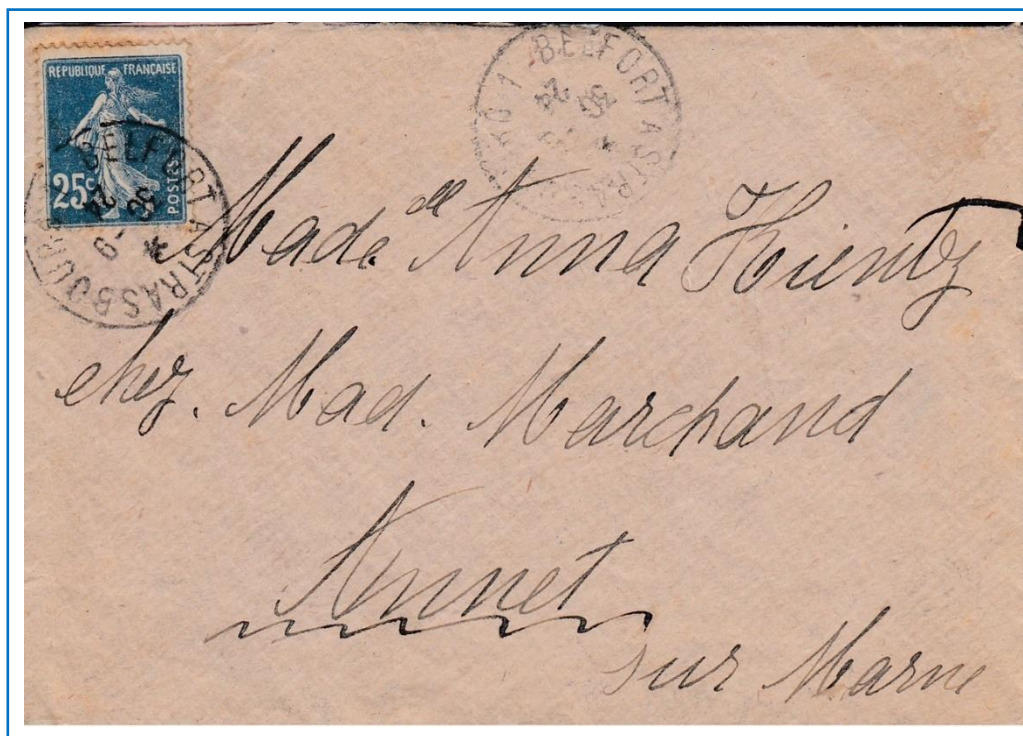 REPUBLIQUE FRANÇAISE
25c POSTES
BELFORT A STRASBOURG
BELFORT A STRASBOURG 1
Madelle Anna Hientz
chez. Mad. Marchand
Annet
sur Marne